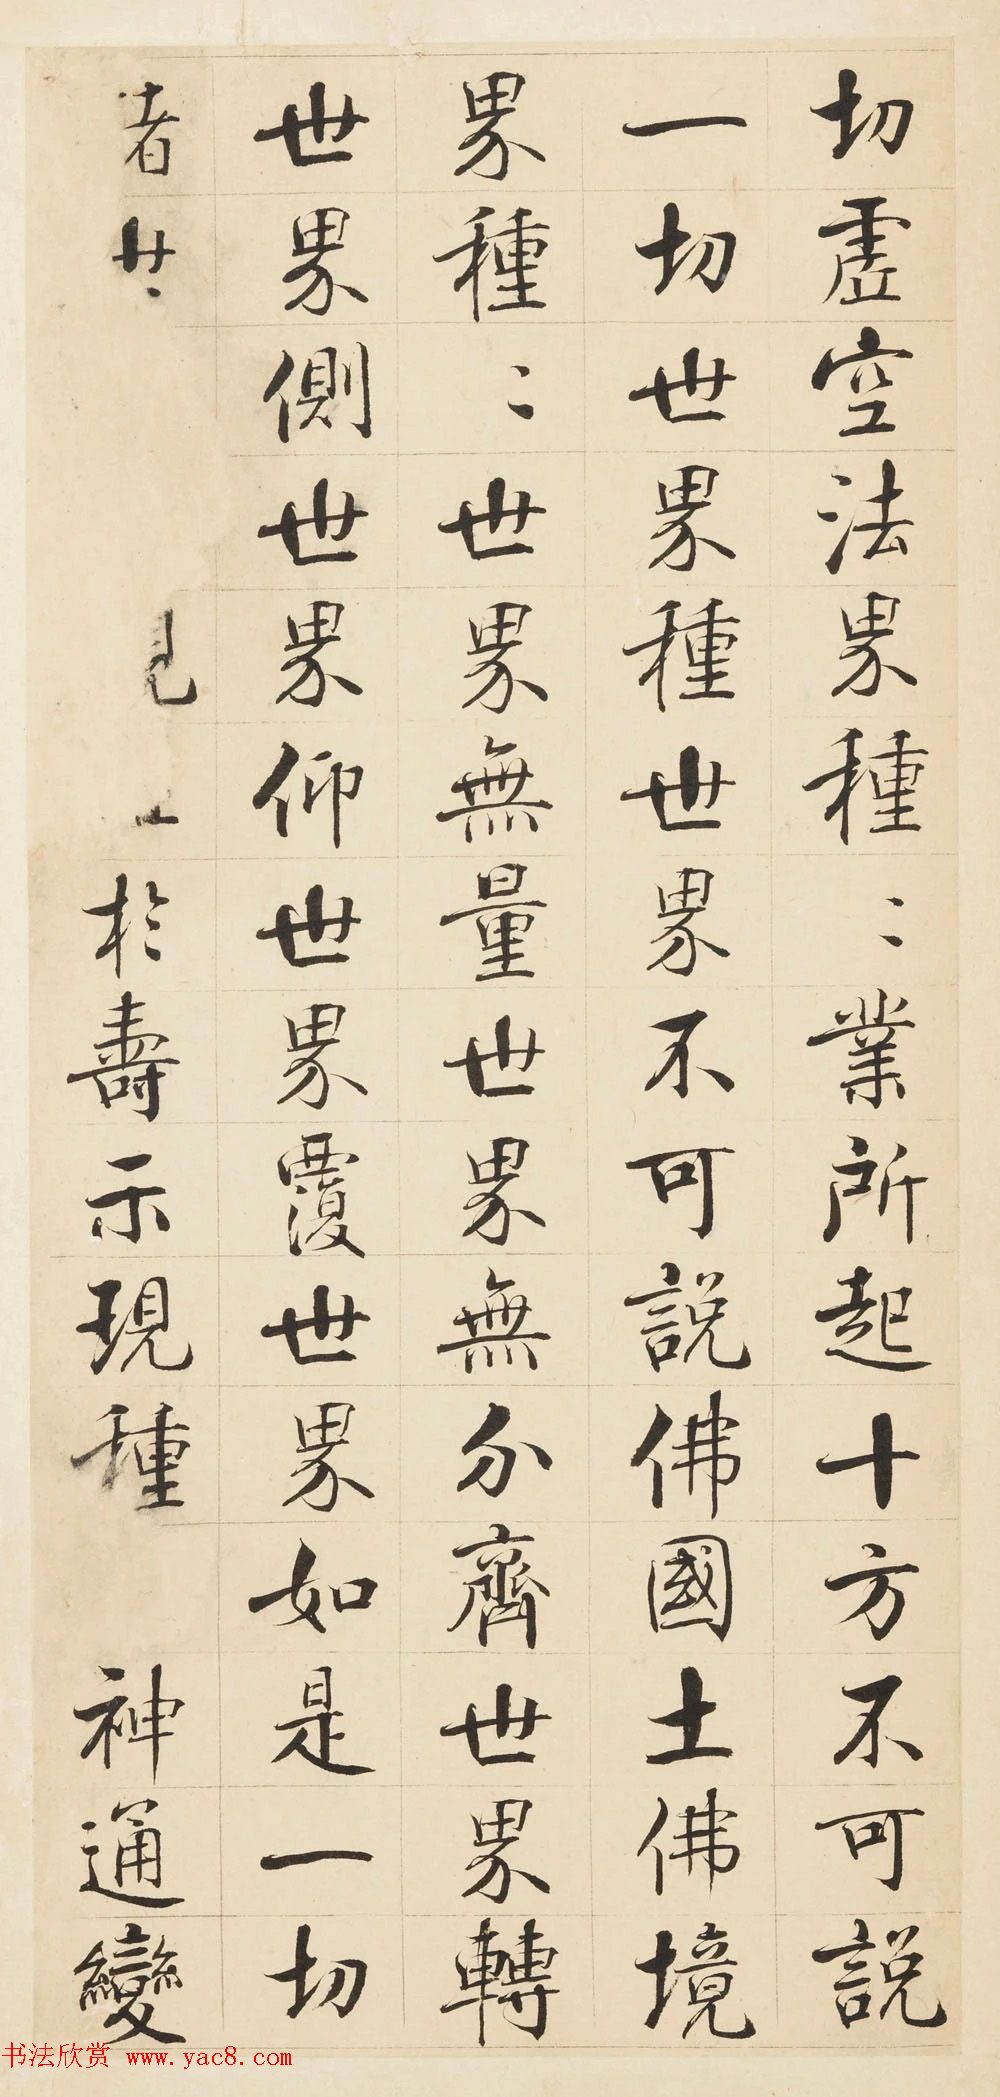 切虛空法界種〻業所起十方不可說
一切世界種世界不可說佛國土佛境
界種〻世界無量世界無分齊世界轉
世界側世界仰世界覆世界如是一切
者 於壽示現種 神通變
书法欣赏 www.yac8.com